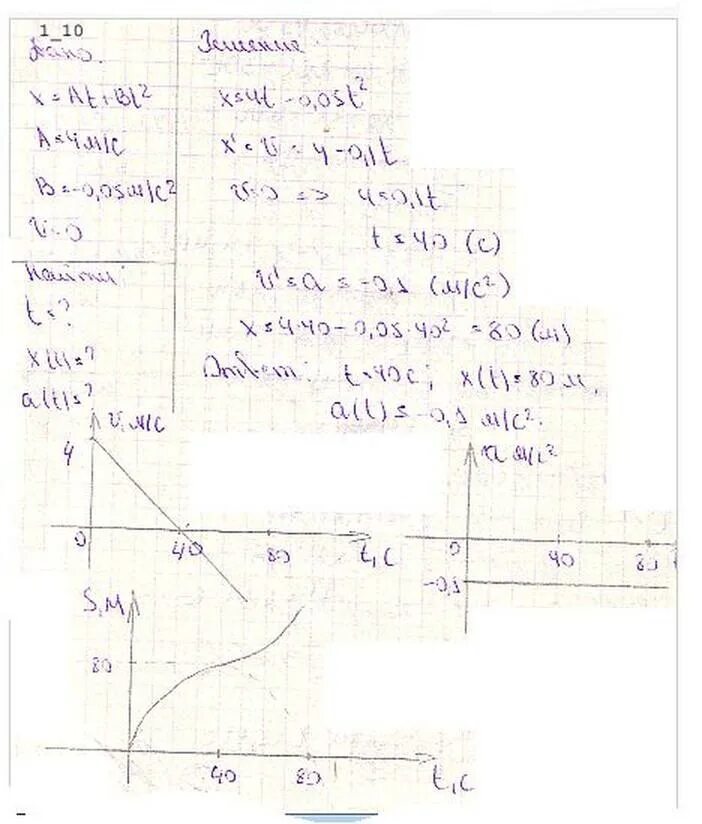 1_10
Дано:
x = At + Bt²
A = 4 м/с
B = -0,05 м/с²
v = 0
Найти:
t = ?
x(t) = ?
a(t) = ?
Решение:
x = 4t - 0,05t²
x' = v = 4 - 0,1t
v = 0 => 4 = 0,1t
t = 40 (с)
v' = a = -0,1 (м/с²)
x = 4·40 - 0,05·40² = 80 (м)
Ответ: t = 40 с; x(t) = 80 м,
a(t) = -0,1 м/с².
v, м/с
4
0
40
80
t, с
a м/с²
0
40
80
-0,1
S, м
80
40
80
t, с